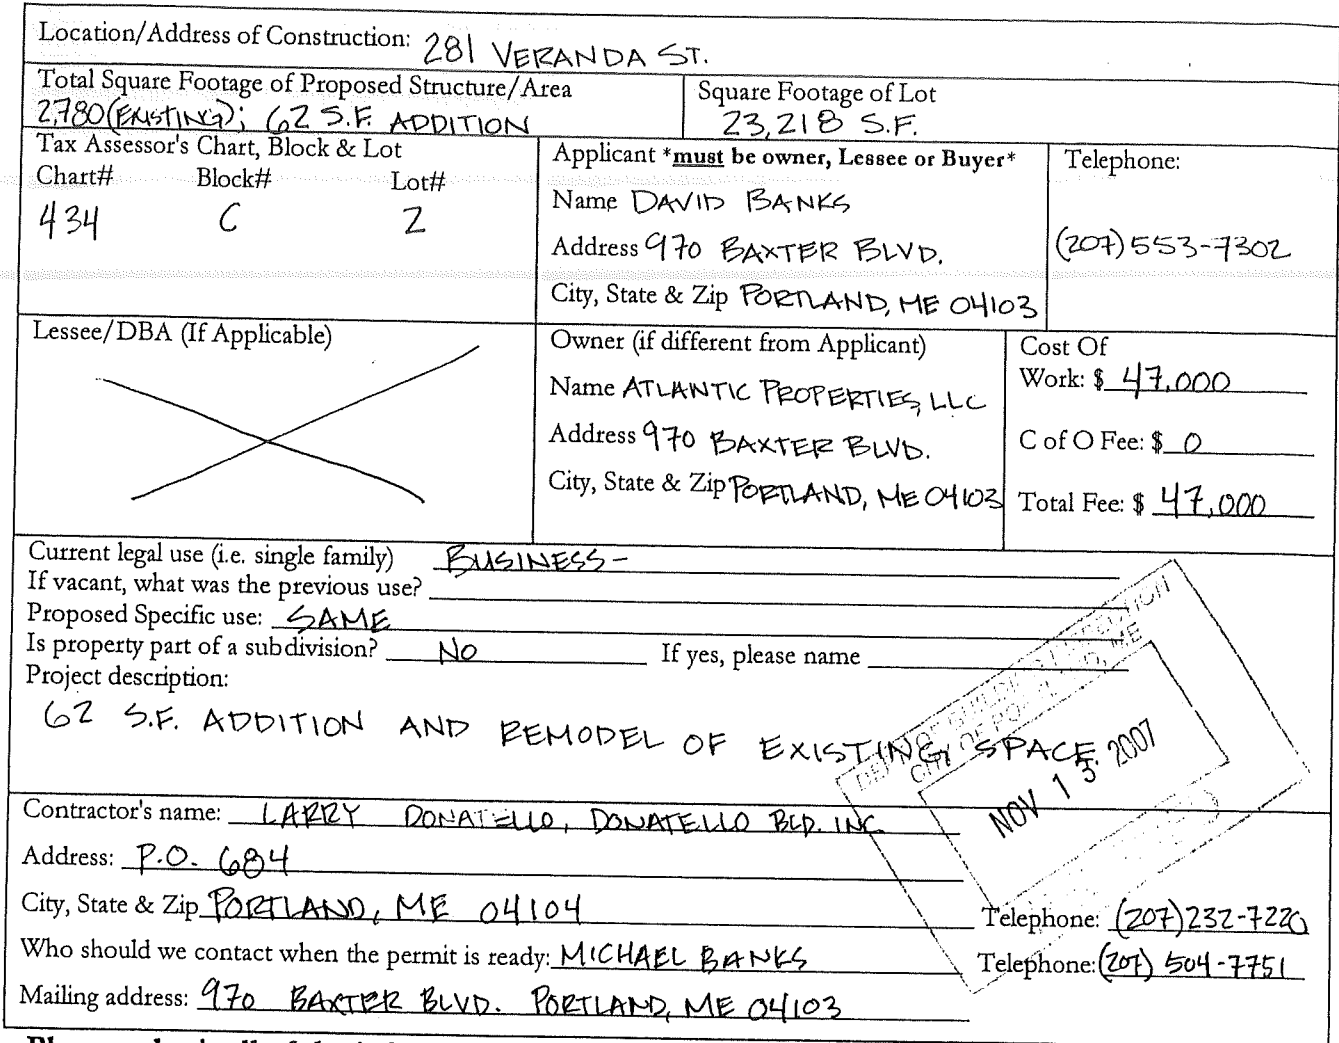 Location/Address of Construction: 281 VERANDA ST.
Total Square Footage of Proposed Structure/Area
2,780 (EXISTING); 62 S.F. ADDITION
Square Footage of Lot
23,218 S.F.
Tax Assessor's Chart, Block & Lot
Chart# Block# Lot#
434 C 2
Applicant *must be owner, Lessee or Buyer*
Name DAVID BANKS
Address 970 BAXTER BLVD.
City, State & Zip PORTLAND, ME 04103
Telephone:
(207) 553-7302
Lessee/DBA (If Applicable)
Owner (if different from Applicant)
Name ATLANTIC PROPERTIES, LLC
Address 970 BAXTER BLVD.
City, State & Zip PORTLAND, ME 04103
Cost Of
Work: $ 47,000
C of O Fee: $ 0
Total Fee: $ 47,000
Current legal use (i.e. single family) BUSINESS-
If vacant, what was the previous use?
Proposed Specific use: SAME
Is property part of a subdivision? NO If yes, please name
Project description:
62 S.F. ADDITION AND REMODEL OF EXISTING SPACE.
CITY OF
NOV 13 2007
Contractor's name: LARRY DONATELLO, DONATELLO BLD. INC
Address: P.O. 684
City, State & Zip PORTLAND, ME 04104 Telephone: (207) 232-7220
Who should we contact when the permit is ready: MICHAEL BANKS Telephone: (207) 504-7751
Mailing address: 970 BAXTER BLVD. PORTLAND, ME 04103